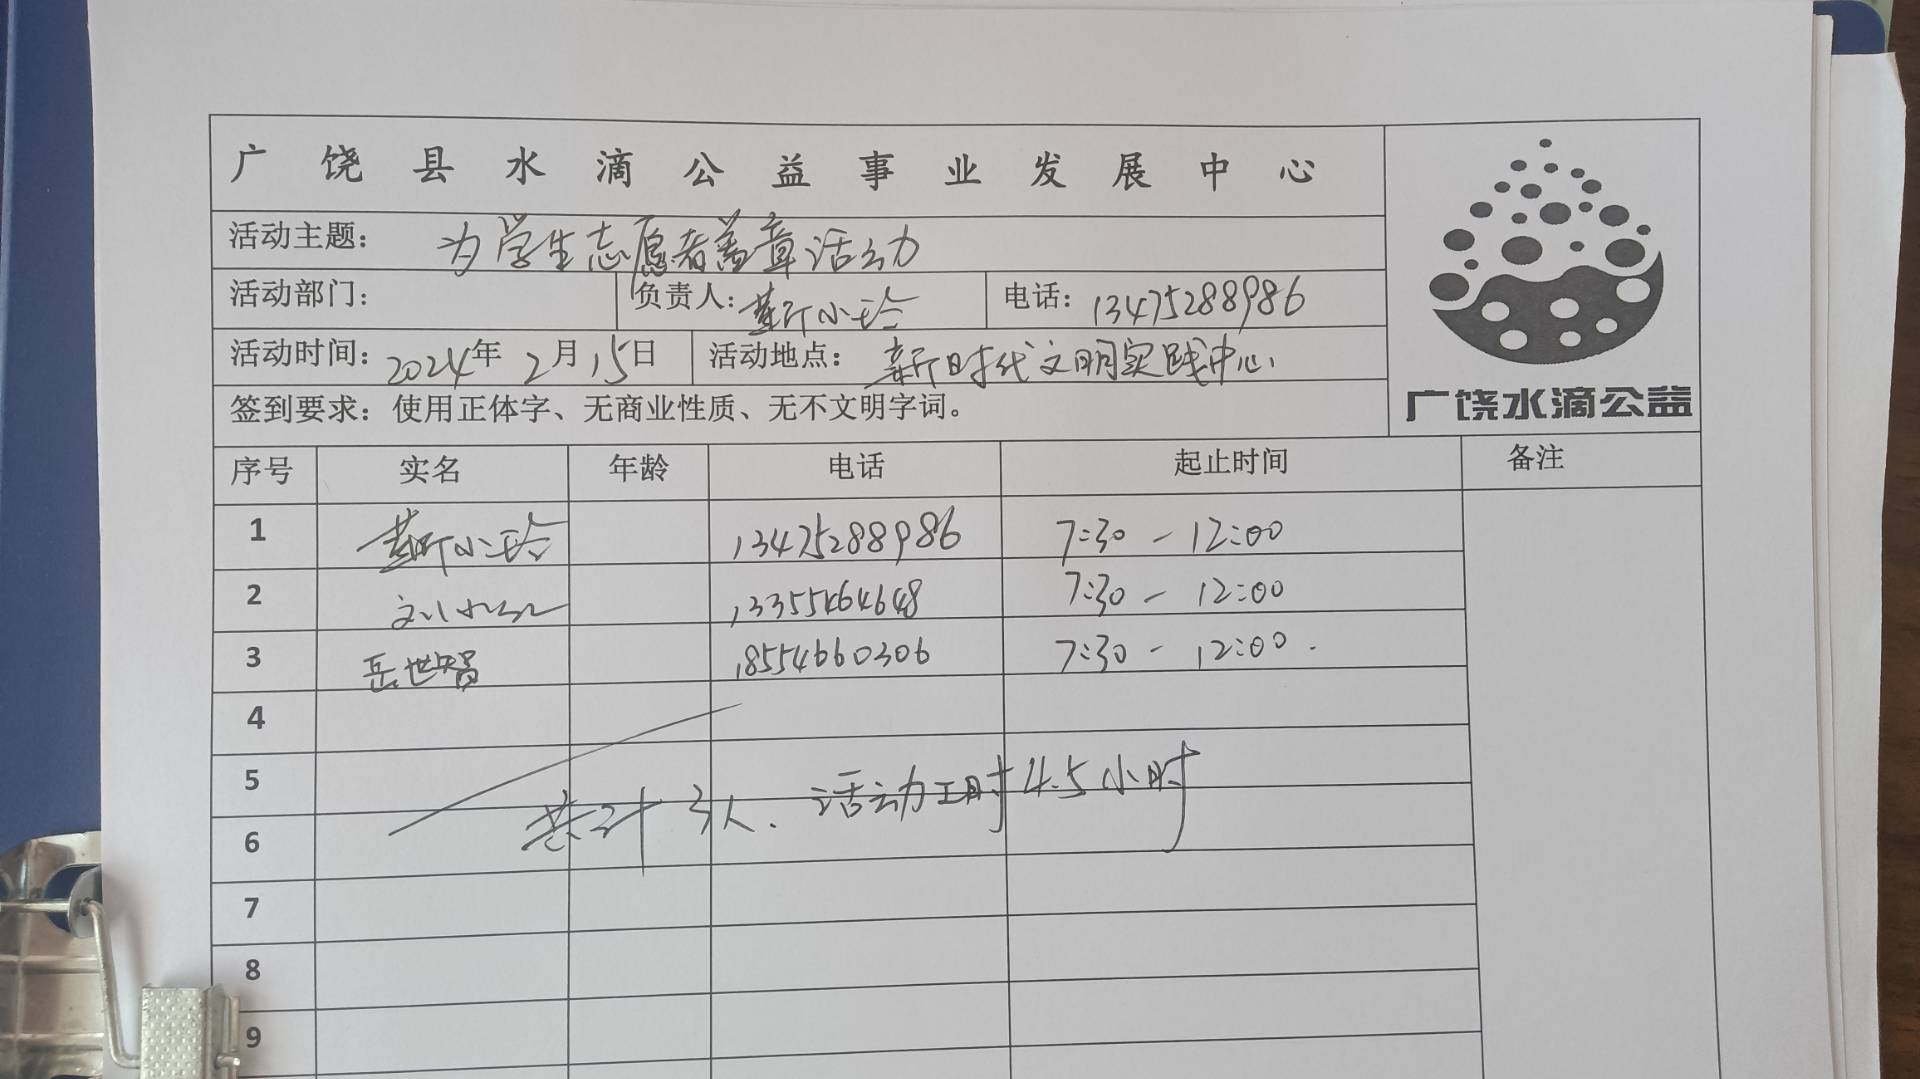 广饶县水滴公益事业发展中心
活动主题： 为学生志愿者盖章活动
活动部门： 负责人：靳小玲 电话：13475288986
活动时间：2024年2月15日 活动地点：新时代文明实践中心
签到要求：使用正体字、无商业性质、无不文明字词。
广饶水滴公益
序号 实名 年龄 电话 起止时间 备注
1 靳小玲 13475288986 7:30-12:00
2 13355464648 7:30-12:00
3 岳世智 18554660306 7:30-12:00.
4
5
共计3人. 活动工时4.5小时
6
7
8
9